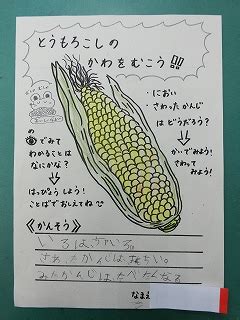 とうもろこしの
かわをむこう!!
・におい
・さわったかんじ
はどうだろう?
かいでみよう!
さわって
みよう!
の
でみて
わかることは
なにかな?
はっぴょうしよう!
ことばでおしえてね
《かんそう》
いろは、きいろ。
さわったかんじは
みたかんじは、たべたくなる
なまえ